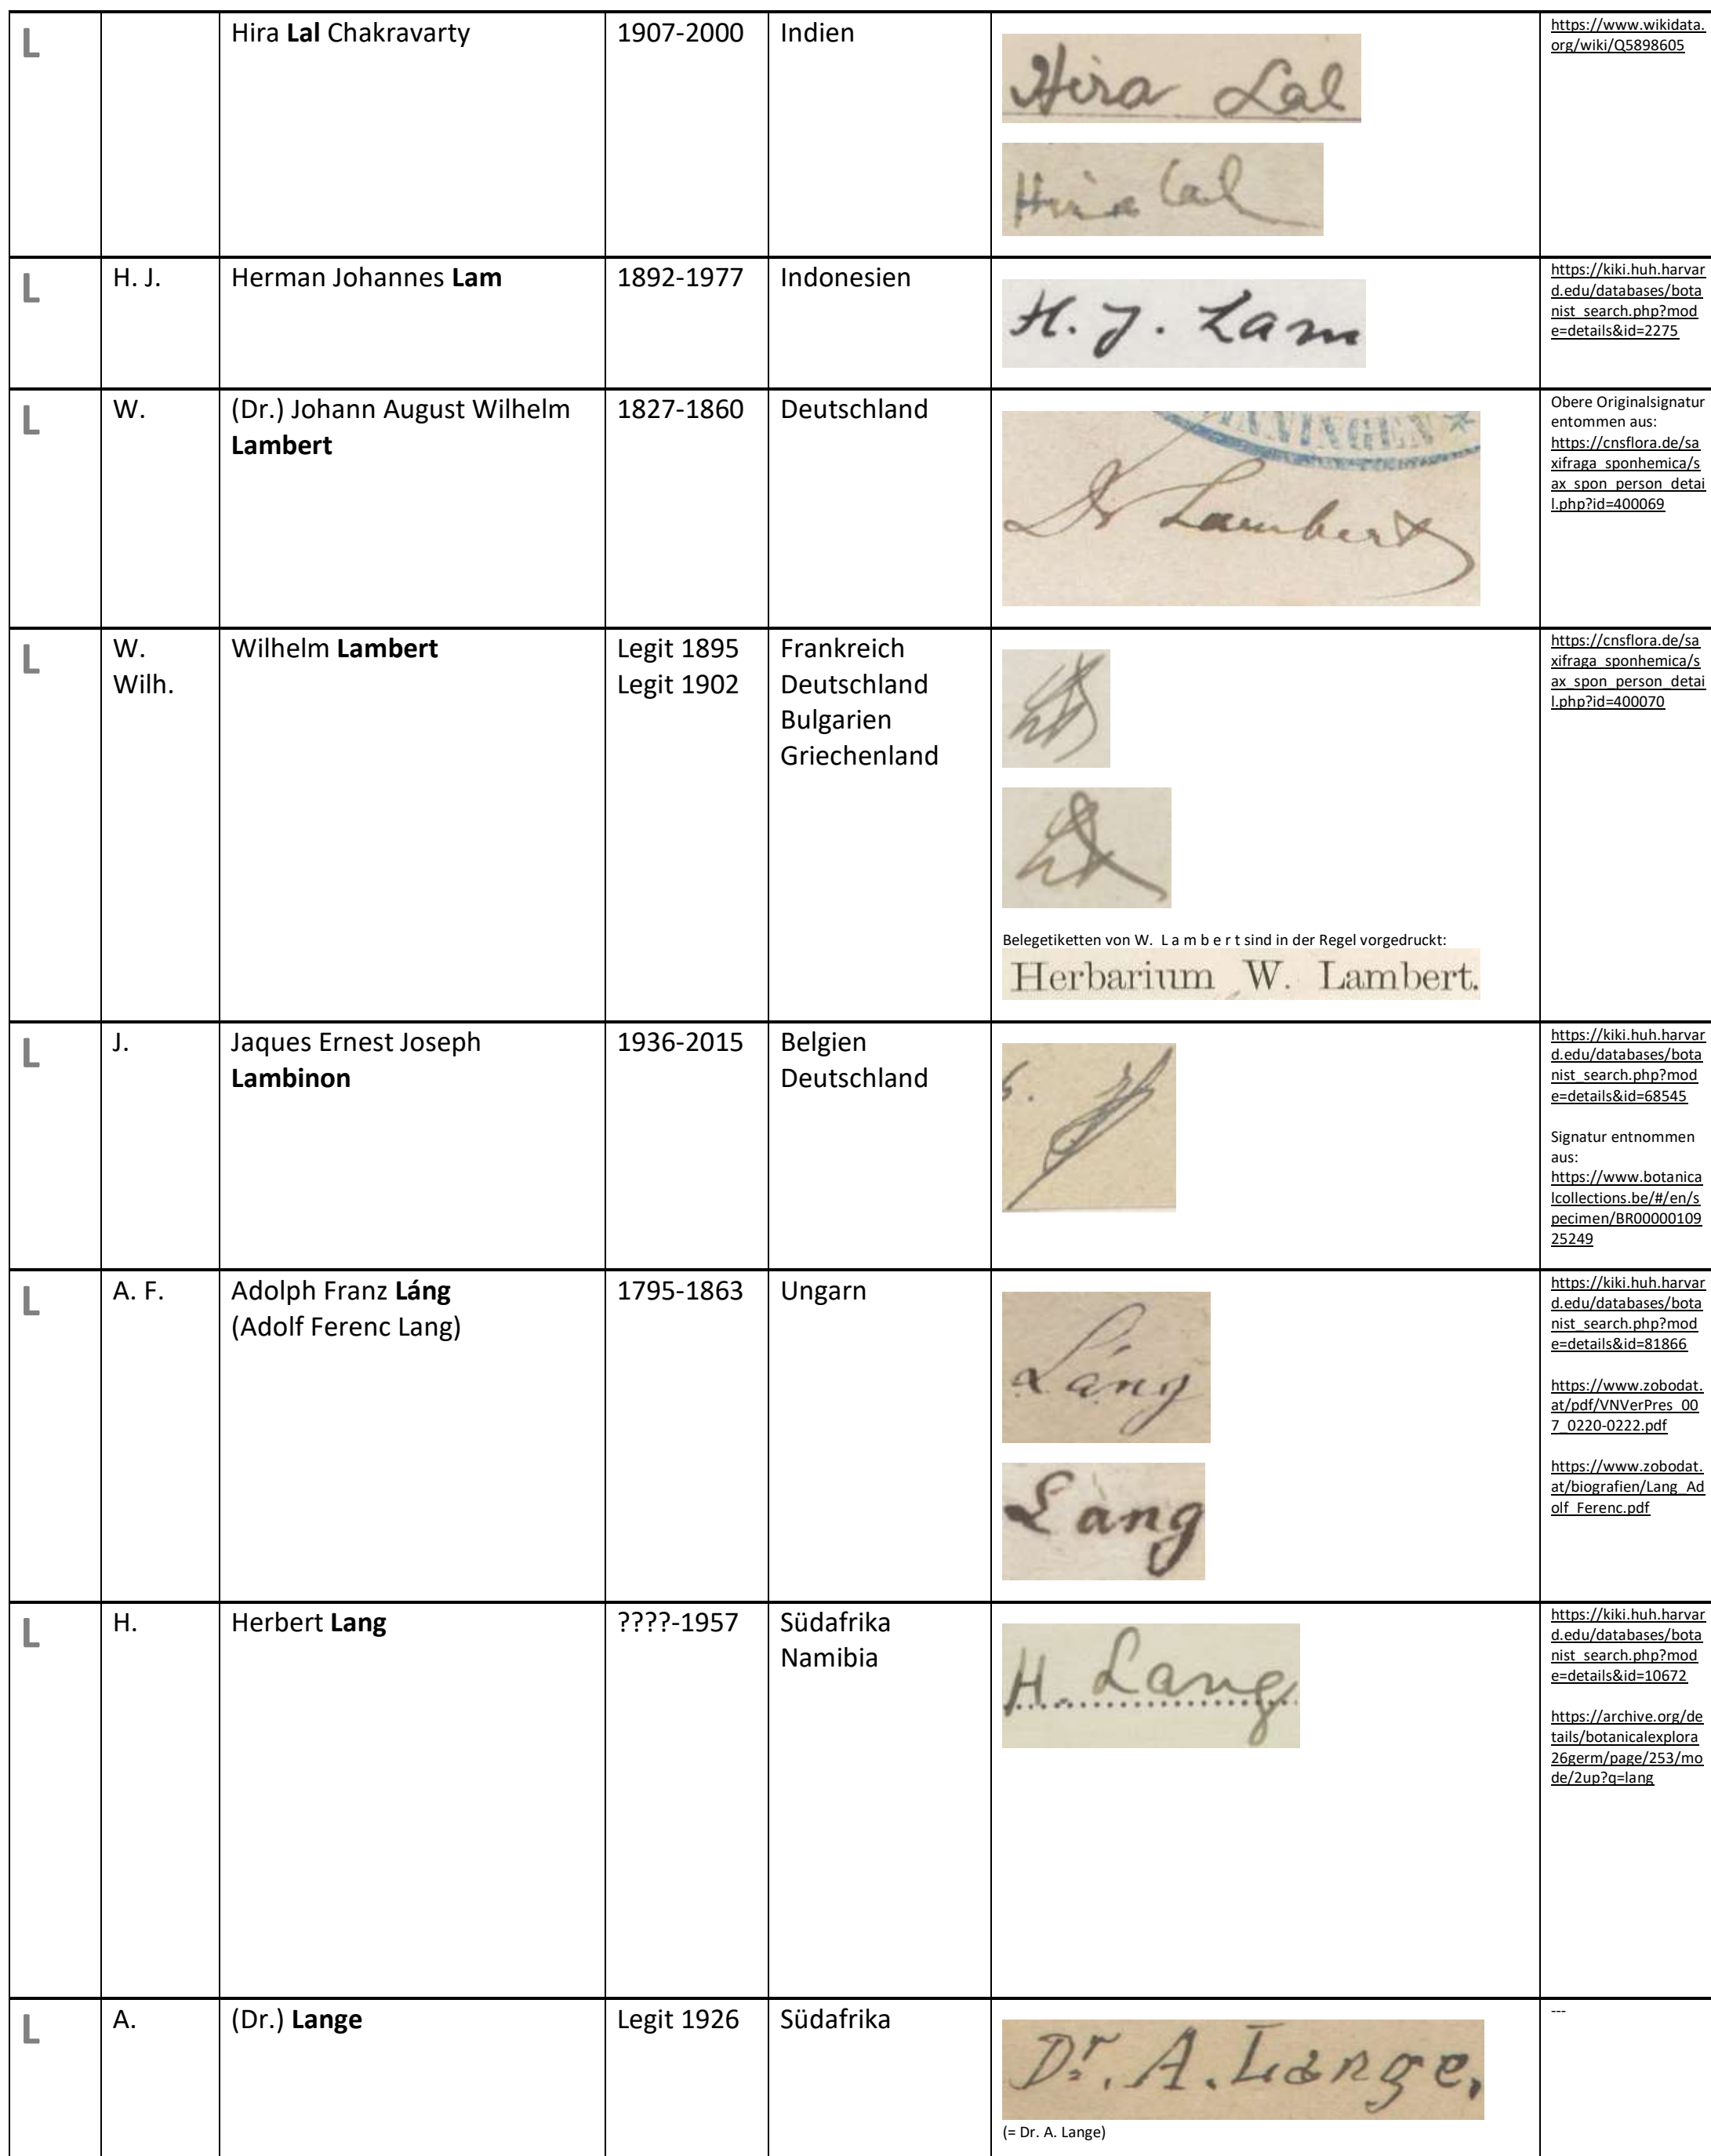 L
Hira Lal Chakravarty
1907-2000
Indien
Hira Lal
Hira Lal
https://www.wikidata.
org/wiki/Q5898605
L
H. J.
Herman Johannes Lam
1892-1977
Indonesien
H. J. Lam
https://kiki.huh.harvar
d.edu/databases/bota
nist_search.php?mod
e=details&id=2275
L
W.
(Dr.) Johann August Wilhelm
Lambert
1827-1860
Deutschland
NNINGEN *
Dr Lambert
Obere Originalsignatur
entommen aus:
https://cnsflora.de/sa
xifraga_sponhemica/s
ax_spon_person_detai
l.php?id=400069
L
W.
Wilh.
Wilhelm Lambert
Legit 1895
Legit 1902
Frankreich
Deutschland
Bulgarien
Griechenland
Belegetiketten von W. L a m b e r t sind in der Regel vorgedruckt:
Herbarium W. Lambert.
https://cnsflora.de/sa
xifraga_sponhemica/s
ax_spon_person_detai
l.php?id=400070
L
J.
Jaques Ernest Joseph
Lambinon
1936-2015
Belgien
Deutschland
https://kiki.huh.harvar
d.edu/databases/bota
nist_search.php?mod
e=details&id=68545
Signatur entnommen
aus:
https://www.botanica
lcollections.be/#/en/s
pecimen/BR00000109
25249
L
A. F.
Adolph Franz Láng
(Adolf Ferenc Lang)
1795-1863
Ungarn
Láng
Láng
https://kiki.huh.harvar
d.edu/databases/bota
nist_search.php?mod
e=details&id=81866
https://www.zobodat.
at/pdf/VNVerPres_00
7_0220-0222.pdf
https://www.zobodat.
at/biografien/Lang_Ad
olf_Ferenc.pdf
L
H.
Herbert Lang
????-1957
Südafrika
Namibia
H. Lang
https://kiki.huh.harvar
d.edu/databases/bota
nist_search.php?mod
e=details&id=10672
https://archive.org/de
tails/botanicalexplora
26germ/page/253/mo
de/2up?q=lang
L
A.
(Dr.) Lange
Legit 1926
Südafrika
Dr. A. Lange.
(= Dr. A. Lange)
---